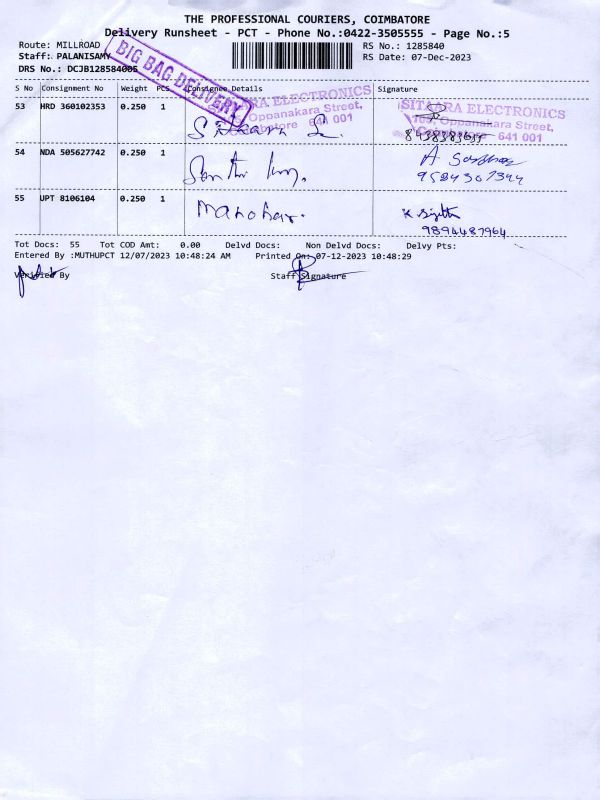 THE PROFESSIONAL COURIERS, COIMBATORE
Delivery Runsheet - PCT - Phone No.:0422-3505555 - Page No.:5
Route: MILLROAD
RS No.: 1285840
Staff: PALANISAMY
RS Date: 07-Dec-2023
DRS No.: DCJB128584005
BIG BAG DELIVERY
S No Consignment No Weight PCS Consignee Details Signature
53 HRD 360102353 0.250 1
ELECTRONICS
Oppanakara Street,
641 001
SITARA ELECTRONICS
Oppanakara Street,
641 001
54 NDA 505627742 0.250 1
9584307344
55 UPT 8106104 0.250 1 Manohar.
9894487964
Tot Docs: 55 Tot COD Amt: 0.00 Delvd Docs: Non Delvd Docs: Delvy Pts:
Entered By :MUTHUPCT 12/07/2023 10:48:24 AM Printed On: 07-12-2023 10:48:29
Verified By
Staff Signature